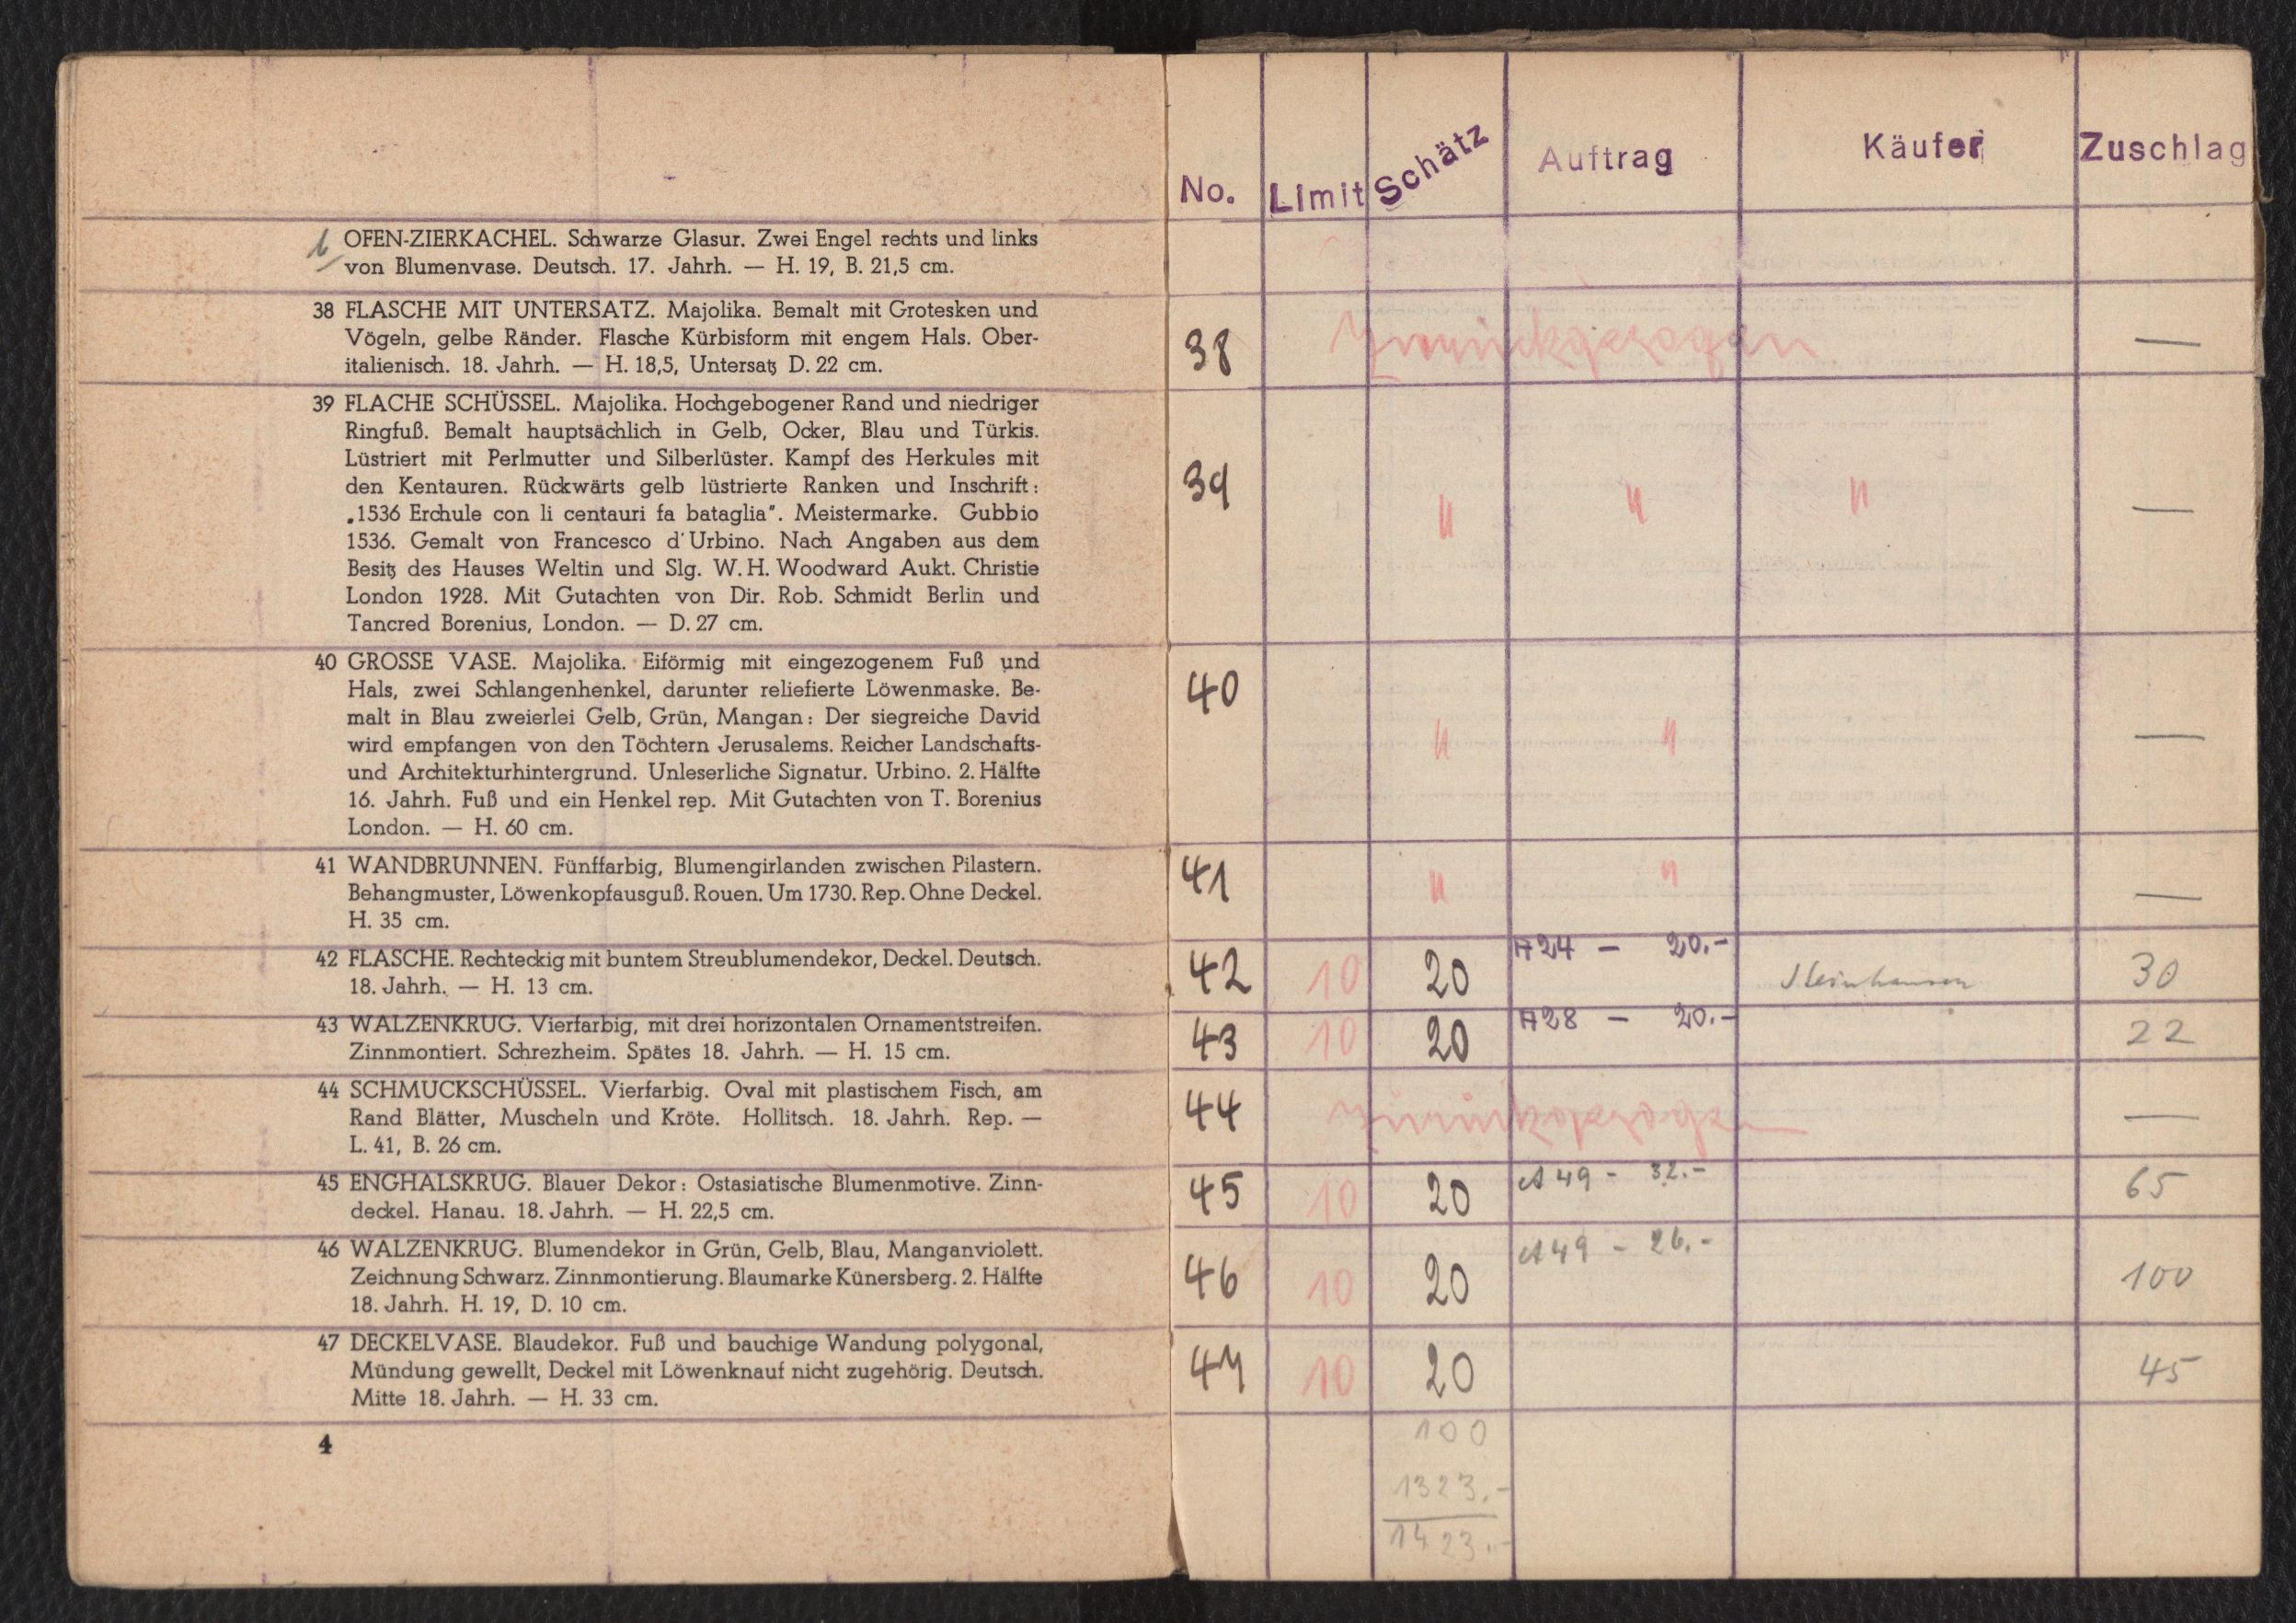 OFEN-ZIERKACHEL. Schwarze Glasur. Zwei Engel rechts und links
von Blumenvase. Deutsch. 17. Jahrh. — H. 19, B. 21,5 cm.
38 FLASCHE MIT UNTERSATZ. Majolika. Bemalt mit Grotesken und
Vögeln, gelbe Ränder. Flasche Kürbisform mit engem Hals. Ober-
italienisch. 18. Jahrh. — H. 18,5, Untersatz D. 22 cm.
39 FLACHE SCHÜSSEL. Majolika. Hochgebogener Rand und niedriger
Ringfuß. Bemalt hauptsächlich in Gelb, Ocker, Blau und Türkis.
Lüstriert mit Perlmutter und Silberlüster. Kampf des Herkules mit
den Kentauren. Rückwärts gelb lüstrierte Ranken und Inschrift:
„1536 Erchule con li centauri fa bataglia". Meistermarke. Gubbio
1536. Gemalt von Francesco d'Urbino. Nach Angaben aus dem
Besitz des Hauses Weltin und Slg. W. H. Woodward Aukt. Christie
London 1928. Mit Gutachten von Dir. Rob. Schmidt Berlin und
Tancred Borenius, London. — D. 27 cm.
40 GROSSE VASE. Majolika. Eiförmig mit eingezogenem Fuß und
Hals, zwei Schlangenhenkel, darunter reliefierte Löwenmaske. Be-
malt in Blau zweierlei Gelb, Grün, Mangan: Der siegreiche David
wird empfangen von den Töchtern Jerusalems. Reicher Landschafts-
und Architekturhintergrund. Unleserliche Signatur. Urbino. 2. Hälfte
16. Jahrh. Fuß und ein Henkel rep. Mit Gutachten von T. Borenius
London. — H. 60 cm.
41 WANDBRUNNEN. Fünffarbig, Blumengirlanden zwischen Pilastern.
Behangmuster, Löwenkopfausguß. Rouen. Um 1730. Rep. Ohne Deckel.
H. 35 cm.
42 FLASCHE. Rechteckig mit buntem Streublumendekor, Deckel. Deutsch.
18. Jahrh. — H. 13 cm.
43 WALZENKRUG. Vierfarbig, mit drei horizontalen Ornamentstreifen.
Zinnmontiert. Schrezheim. Spätes 18. Jahrh. — H. 15 cm.
44 SCHMUCKSCHÜSSEL. Vierfarbig. Oval mit plastischem Fisch, am
Rand Blätter, Muscheln und Kröte. Hollitsch. 18. Jahrh. Rep. —
L. 41, B. 26 cm.
45 ENGHALSKRUG. Blauer Dekor: Ostasiatische Blumenmotive. Zinn-
deckel. Hanau. 18. Jahrh. — H. 22,5 cm.
46 WALZENKRUG. Blumendekor in Grün, Gelb, Blau, Manganviolett.
Zeichnung Schwarz. Zinnmontierung. Blaumarke Künersberg. 2. Hälfte
18. Jahrh. H. 19, D. 10 cm.
47 DECKELVASE. Blaudekor. Fuß und bauchige Wandung polygonal,
Mündung gewellt, Deckel mit Löwenknauf nicht zugehörig. Deutsch.
Mitte 18. Jahrh. — H. 33 cm.
4
No. Limit Schätz Auftrag Käufer Zuschlag
38 Zurückgezogen —
39 " " " —
40 " " —
41 " " —
42 10 20 A24 — 20.- 30
43 10 20 A28 — 20.- 22
44 zurückgezogen —
45 10 20 A 49 - 32.- 65
46 10 20 A 49 - 26.- 100
47 10 20 45
100
1323.-
1423.-